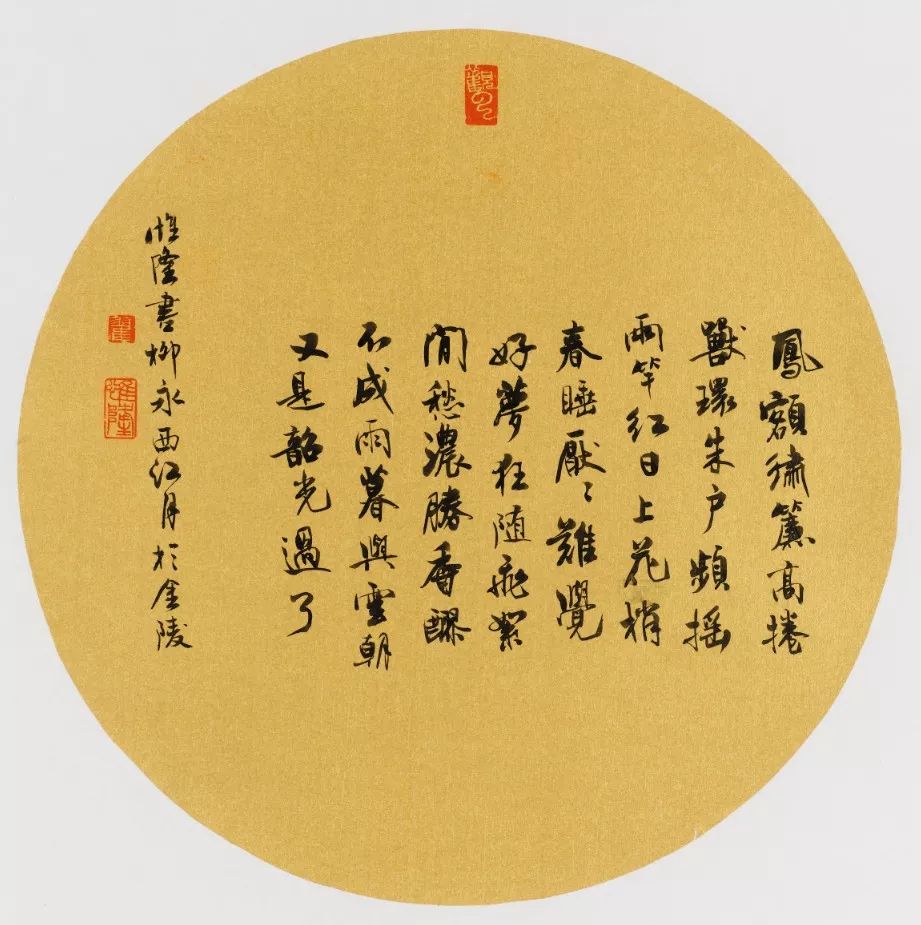 鳳額繡簾高捲
獸環朱户頻摇
兩竿红日上花梢
春睡厭〻難覺
好夢狂随飛絮
閒愁濃勝香醪
不成雨暮與雲朝
又是韶光過了
惟隆書柳永西江月於金陵
惟隆